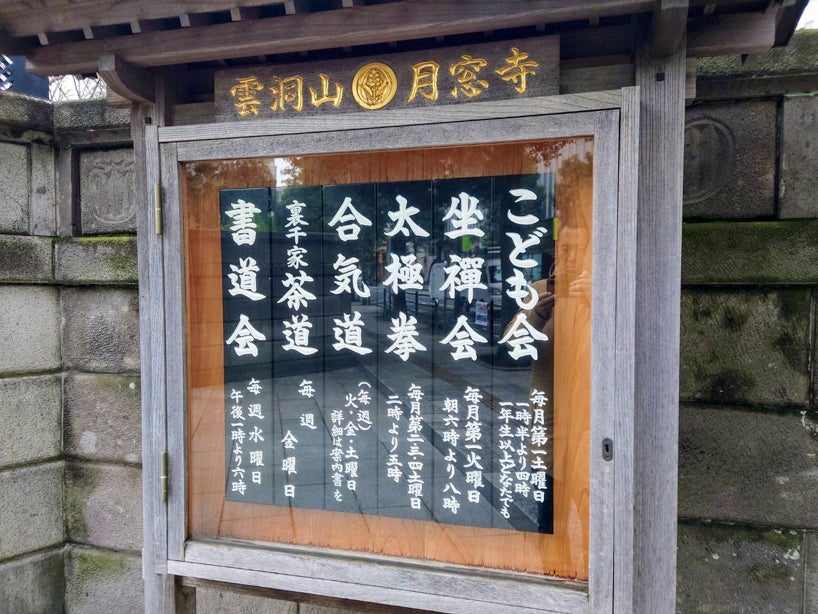 雲洞山 月窓寺
こども会
毎月第一土曜日
一時半より四時
一年生以上どなたでも
坐禅会
毎月第一火曜日
朝六時より八時
太極拳
毎月第二・三・四土曜日
二時より五時
合気道
(毎週)
火・金・土曜日
詳細は案内書を
裏千家茶道
毎週 金曜日
書道会
毎週水曜日
午後一時より六時